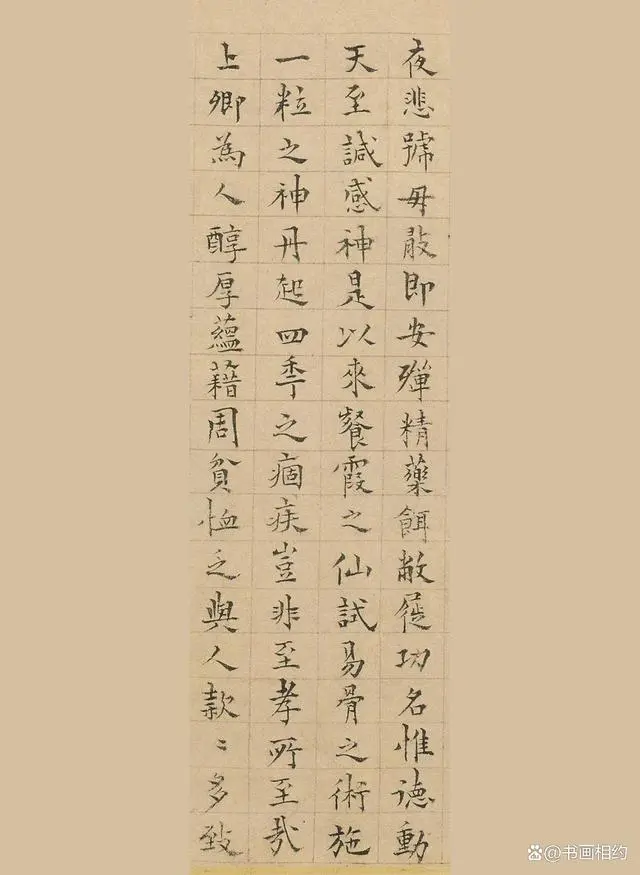 夜悲號毋敢即安殫精藥餌敝屣功名惟德動
天至諴感神是以來餐霞之仙試易骨之術施
一粒之神丹起四秊之痼疾豈非至孝所至哉
上卿為人醇厚蘊籍周貧恤乏與人款〻多致
@书画相约